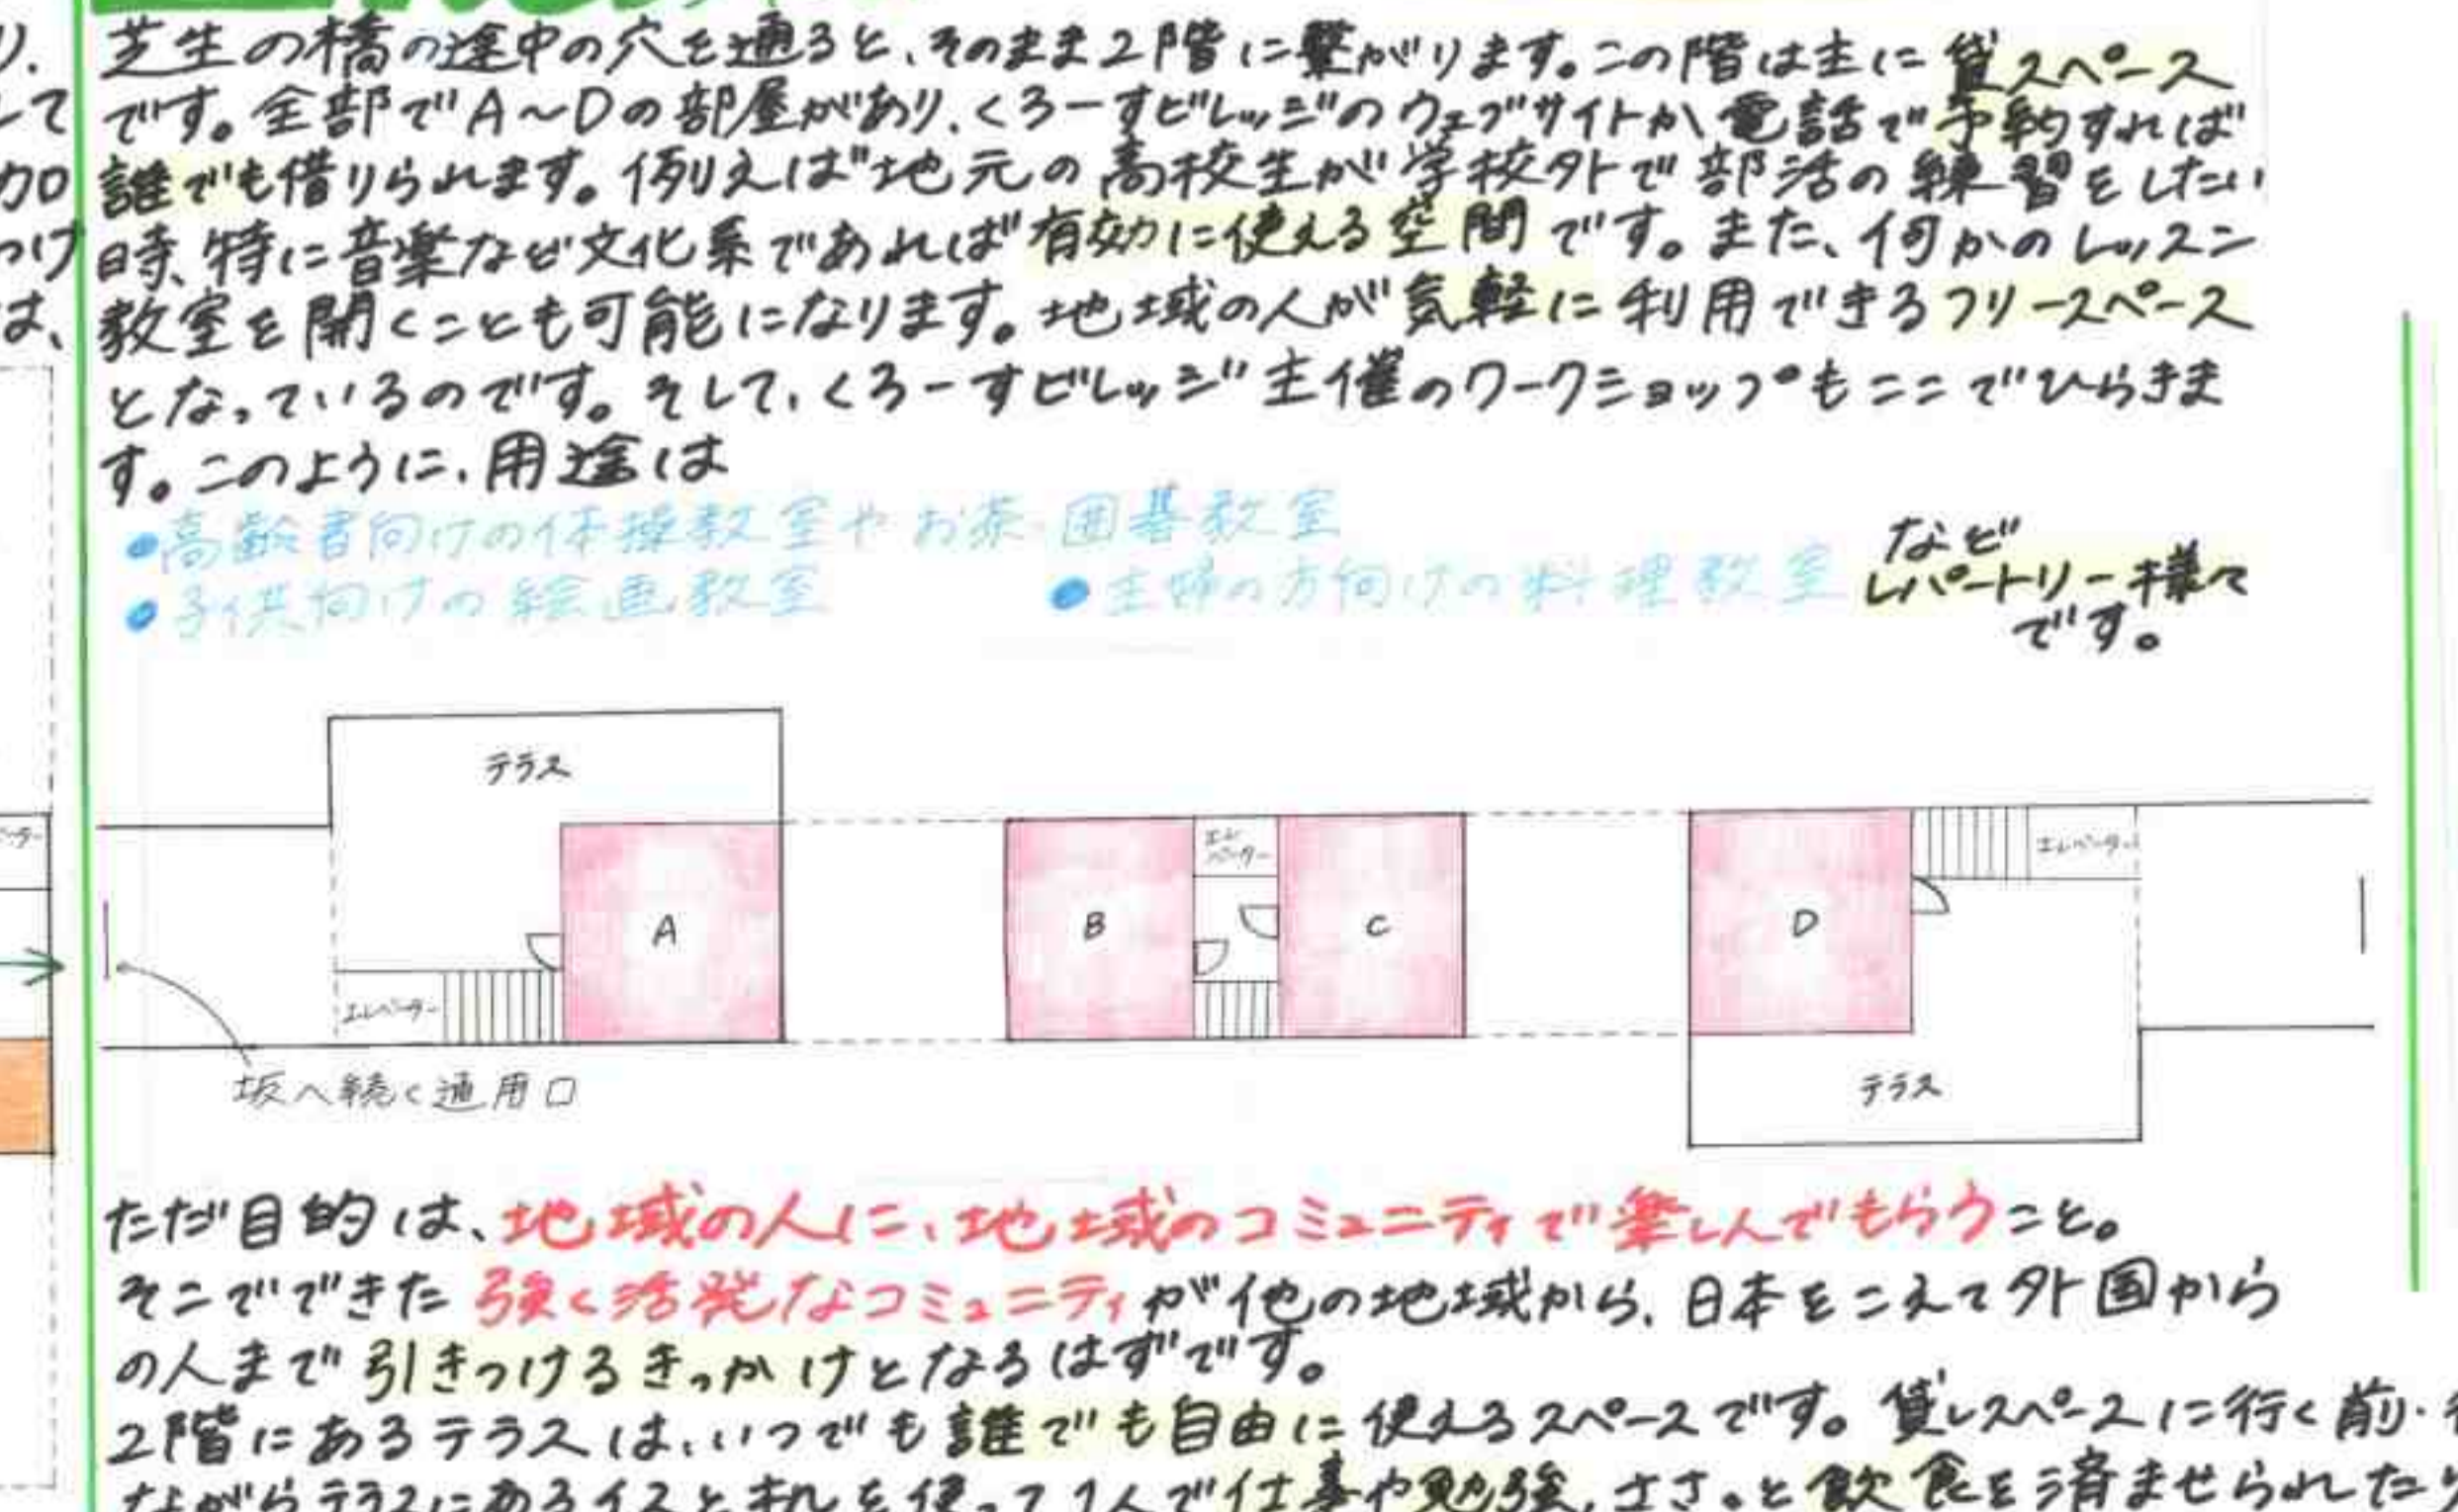 り.
芝生の橋の途中の穴を通ると、そのまま2階に繋がります。この階は主に貸スペース
して
です。全部でA~Dの部屋があり、くろーすビレッジのウェブサイトか電話で予約すれば
加
誰でも借りられます。例えば地元の高校生が学校外で部活の練習をしたい
つけ
時、特に音楽など文化系であれば有効に使える空間です。また、何かのレッスン
は、
教室を開くことも可能になります。地域の人が気軽に利用できるフリースペース
となっているのです。そして、くろーすビレッジ主催のワークショップもここでひらきま
す。このように、用途は
●高齢者向けの体操教室やお茶・囲碁教室
●子供向けの絵画教室 ●主婦の方向けの料理教室
など
レパートリー様々
です。
テラス
エレベーター
A
B
エレ
ベーター
C
D
エレベーター
ーター
エレベーター
坂へ続く通用口
テラス
ただ目的は、地域の人に、地域のコミュニティで楽しんでもらうこと。
そこでできた強く活発なコミュニティが他の地域から、日本をこえて外国から
の人まで引きつけるきっかけとなるはずです。
2階にあるテラスは、いつでも誰でも自由に使えるスペースです。貸しスペースに行く前・
ながらテラスにあるイスと机を使って1人で仕事や勉強、ささっと飲食を済ませられたり